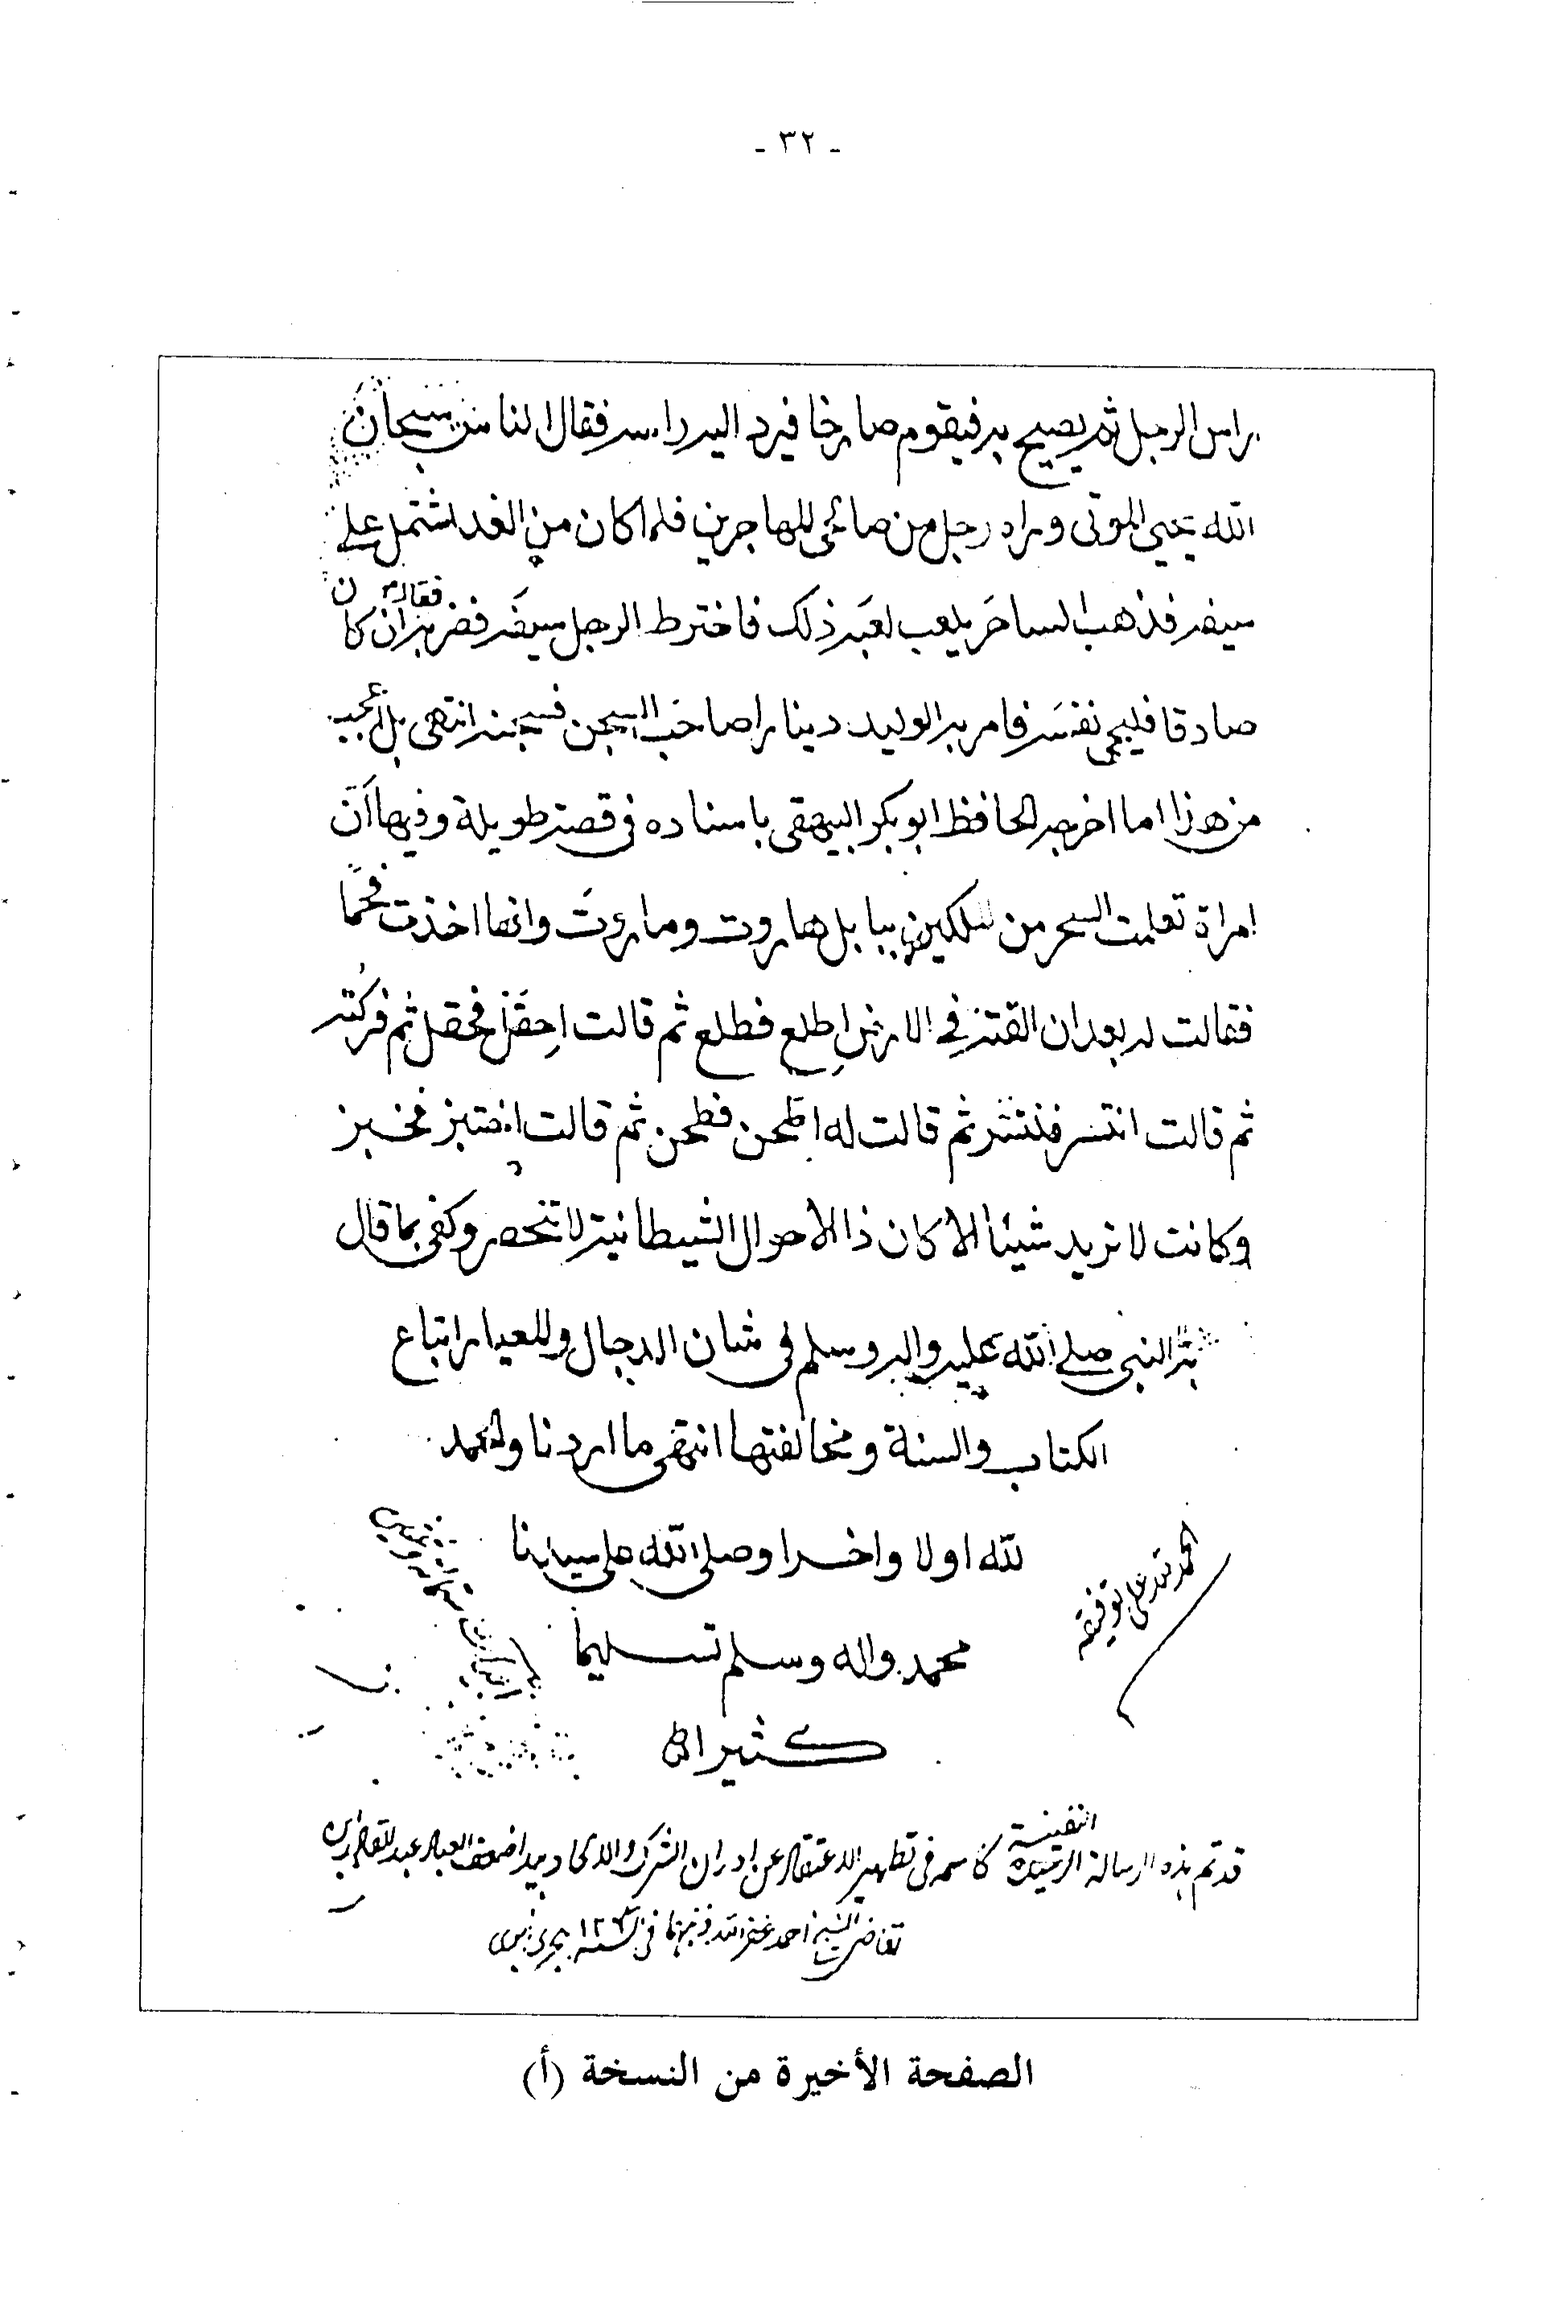 - ٣٢ -
براس الرجل ثم يصيح به فيقوم صارخا فيرد اليه راسه فقال الناس سبحان
الله يحيى الموتى وراه رجل من صالحى المهاجرين فلما كان من الغد اشتمل على
سيفه فذهب الساحر يلعب لعبه ذلك فاخترط الرجل سيفه فضربه فقال ان كان
صادقا فليحيى نفسه فامر به الوليد دينارا صاحب السجن فسجنه انتهى بل اعجب
من هذا ما اخرجه الحافظ ابو بكر البيهقى باسناده فى قصة طويلة وفيها ان
امراة تعلمت السحر من الملكين ببابل هاروت وماروت وانها اخذت قمحا
فقالت له بعد ان القته فى الارض اطلع فطلع ثم قالت احقل فحقل ثم فركته
ثم قالت له اطحن فطحن ثم قالت اختبز فخبز
وكانت لا تريد شيئا الا كان ذا الاحوال الشيطانية لا تنحصر وكفى بما قال
النبى صلى الله عليه واله وسلم فى شان الدجال وللعيار اتباع
الكتاب والسنة ومخالفتها انتهى ما اردنا والحمد
لله اولا واخرا وصلى الله على سيدنا
محمد واله وسلم تسليما
كثيرا
الحمد لله على توفيقه
قد تم هذه الرسالة النفيسة كاسمه فى تطهير الاعتقاد عن ادران الشرك والالحاد بيد اضعف العباد
احمد غفر الله ذنبهما فى
الصفحة الأخيرة من النسخة (أ)